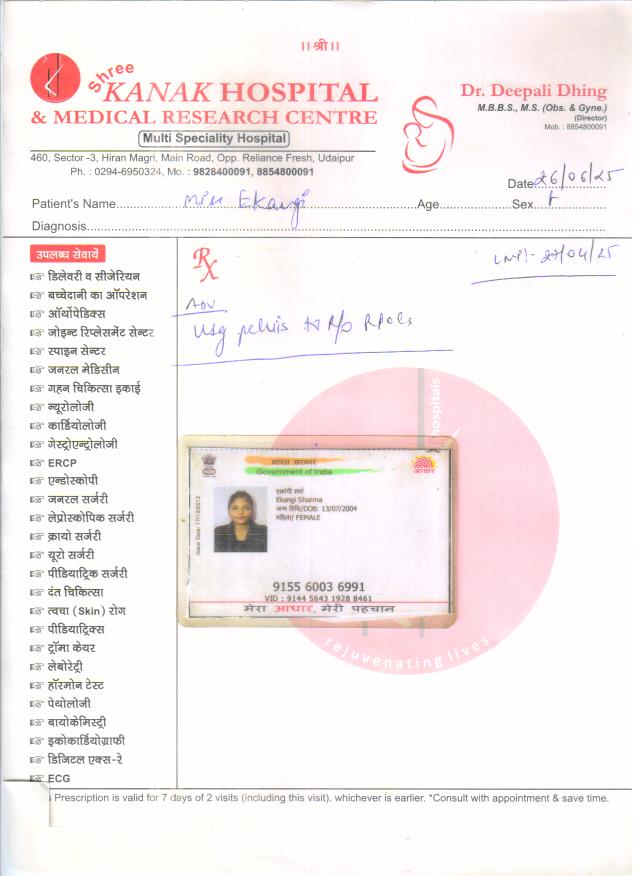 ।। श्री ।।
Shree
KANAK HOSPITAL
& MEDICAL RESEARCH CENTRE
Multi Speciality Hospital
460, Sector -3, Hiran Magri, Main Road, Opp. Reliance Fresh, Udaipur
Ph. : 0294-6950324, Mo. : 9828400091, 8854800091
Dr. Deepali Dhing
M.B.B.S., M.S. (Obs. & Gyne.)
(Director)
Mob. : 8854800091
Date 26/06/25
Patient's Name Miss Ekangi Age Sex F
Diagnosis
उपलब्ध सेवायें
डिलेवरी व सीजेरियन
बच्चेदानी का ऑपरेशन
ऑर्थोपेडिक्स
जोइन्ट रिप्लेसमेंट सेन्टर
स्पाइन सेन्टर
जनरल मेडिसीन
गहन चिकित्सा इकाई
न्यूरोलोजी
कार्डियोलोजी
गेस्ट्रोएन्ट्रोलोजी
ERCP
एन्डोस्कोपी
जनरल सर्जरी
लेप्रोस्कोपिक सर्जरी
क्रायो सर्जरी
यूरो सर्जरी
पीडियाट्रिक सर्जरी
दंत चिकित्सा
त्वचा (Skin) रोग
पीडियाट्रिक्स
ट्रॉमा केयर
लेबोरेट्री
हॉरमोन टेस्ट
पेथोलोजी
बायोकेमिस्ट्री
इकोकार्डियोग्राफी
डिजिटल एक्स-रे
ECG
Rx
LMP:- 27/04/25
Adv
USG pelvis to R/o RPOCs
hospitals
भारत सरकार
Government of India
आधार
Issue Date: 17/12/2012
एकांगी शर्मा
Ekangi Sharma
जन्म तिथि/DOB: 13/07/2004
महिला/ FEMALE
9155 6003 6991
VID : 9144 5643 1928 8461
मेरा आधार, मेरी पहचान
rejuvenating lives
Prescription is valid for 7 days of 2 visits (including this visit). whichever is earlier. *Consult with appointment & save time.